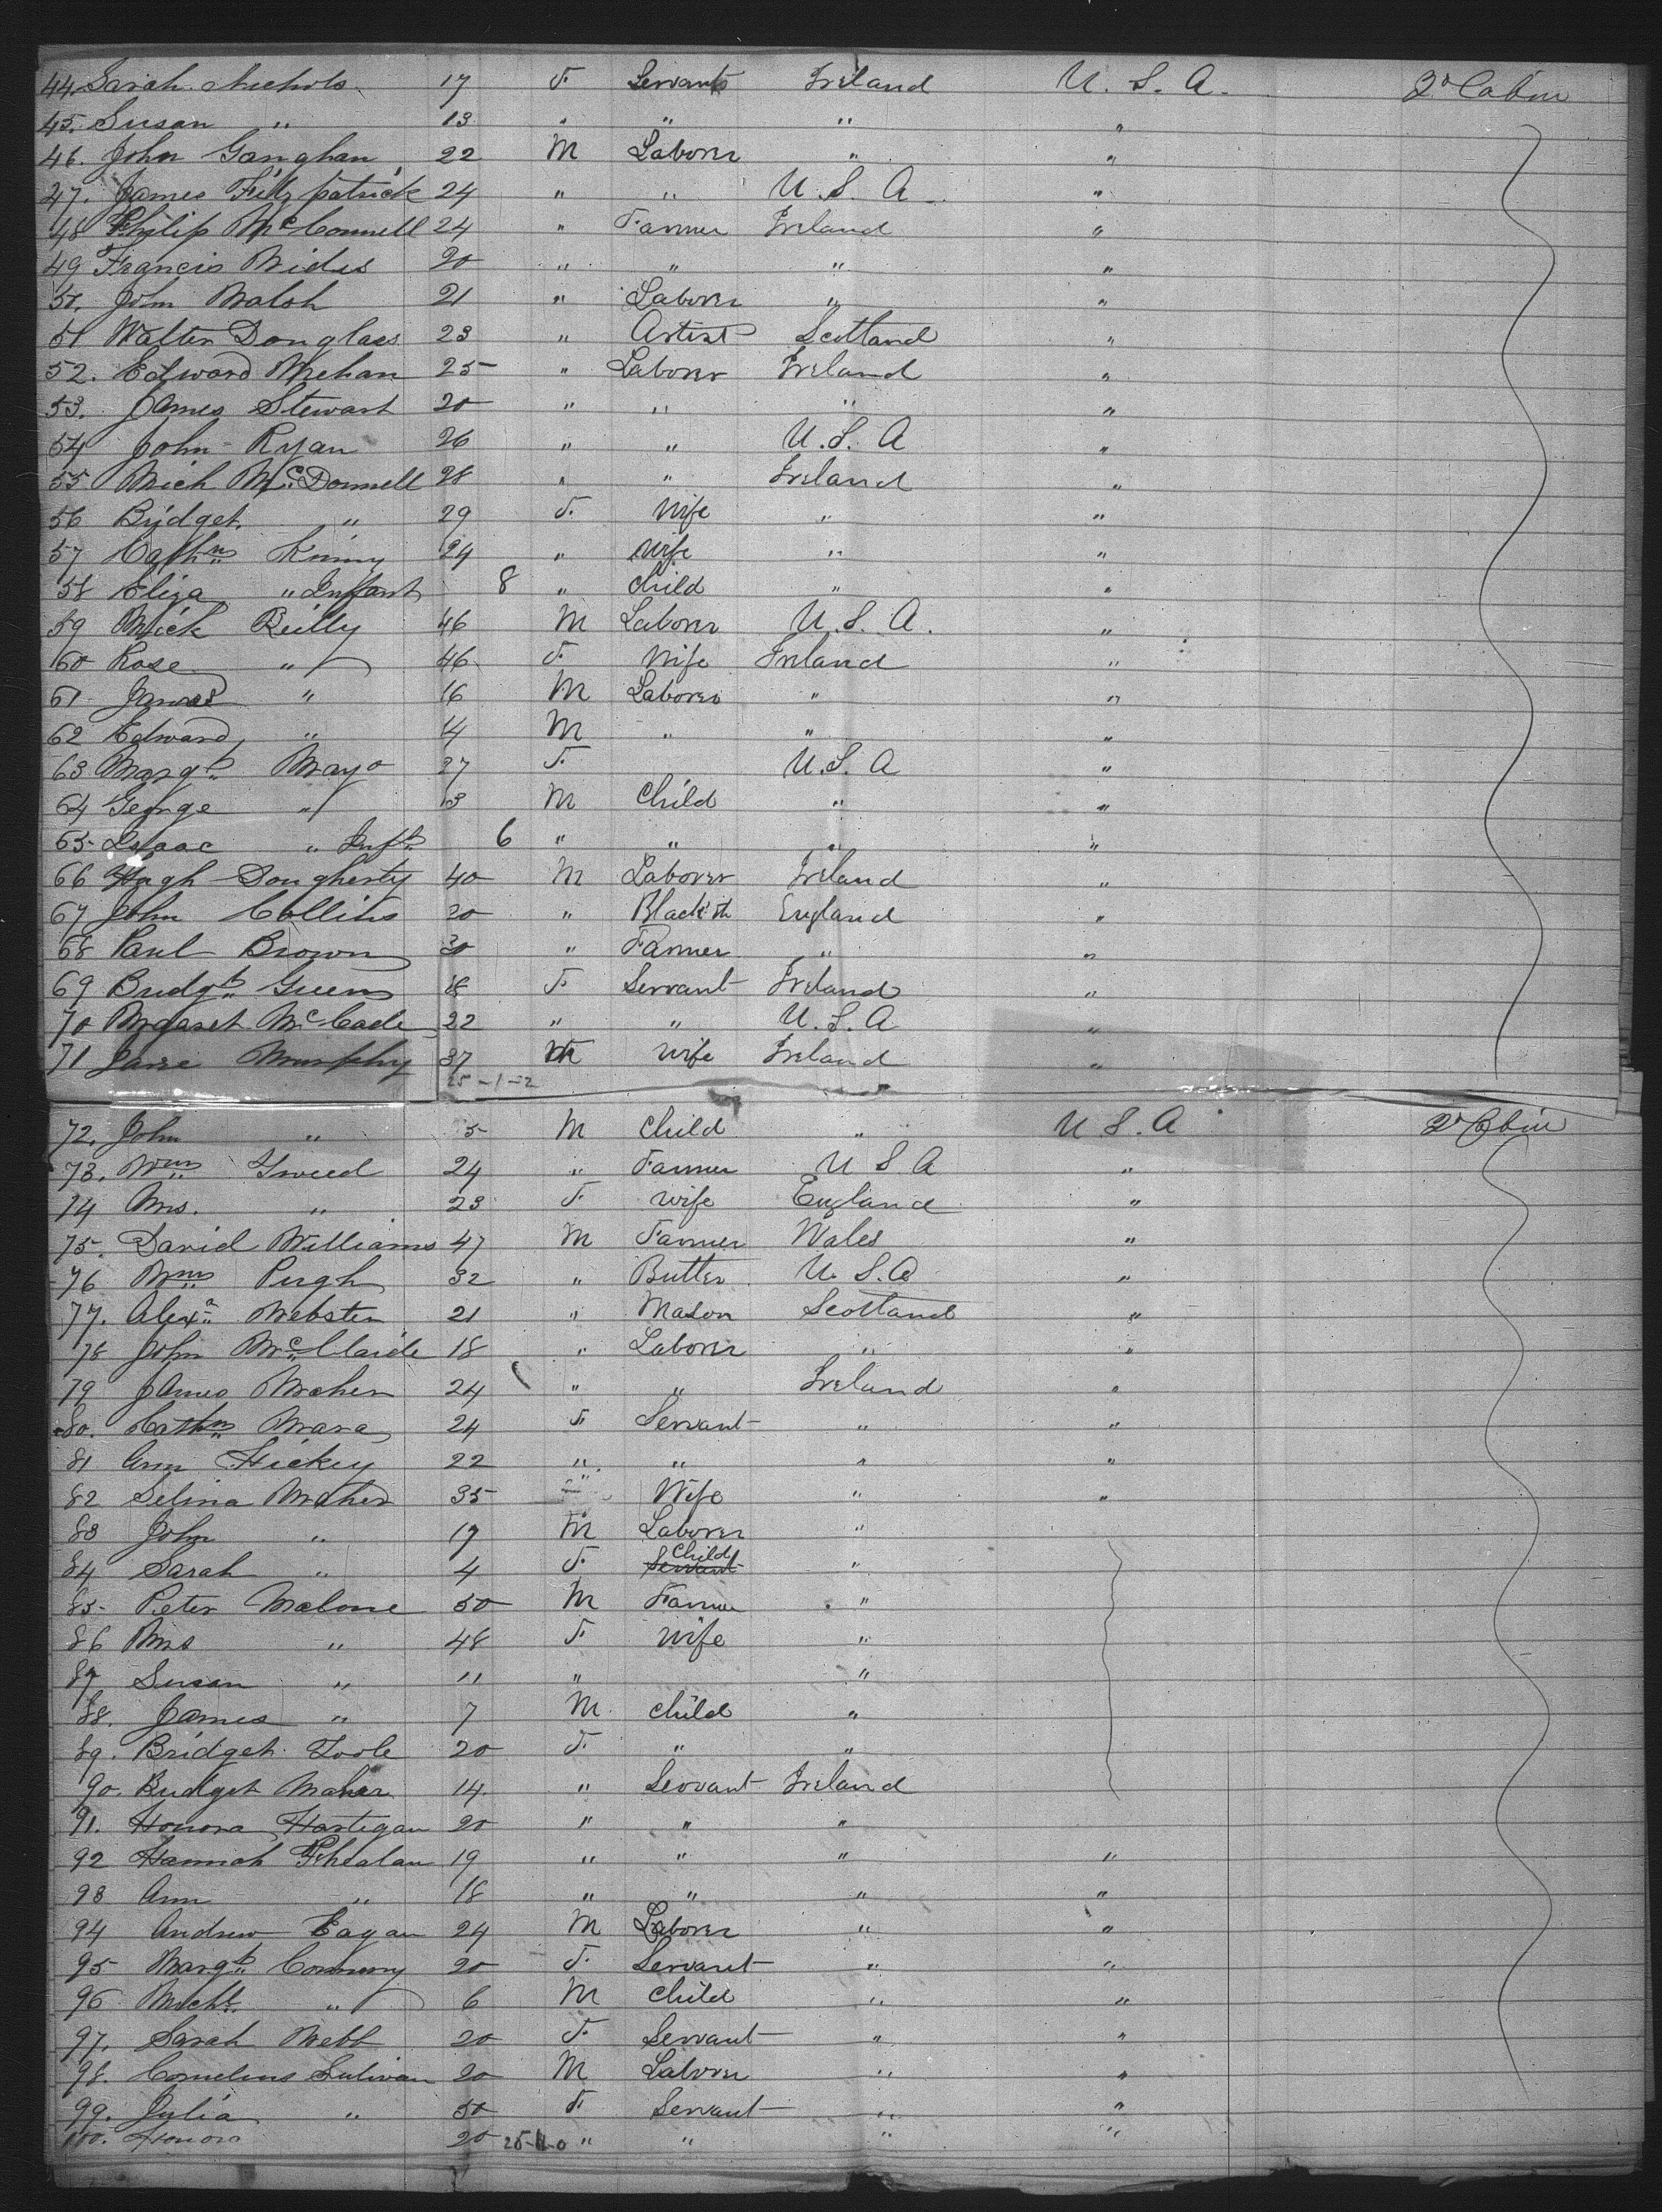 44. Sarah Nichols 17 F. Servants Ireland U. S. A. 2d Cabin
45. Susan " 13 " " " "
46. John Ganghan 22 M Laborer " "
47. James Fitzpatrick 24 " " U. S. A. "
48 Philip McConnell 24 " Farmer Ireland "
49 Francis 20 " " " "
50. John Walsh 21 " Laborer " "
51 Walter Douglass 23 " Artist Scotland "
52. Edward Mehan 25 " Laborer Ireland "
53. James Stewart 20 " " " "
54 John Ryan 26 " " U. S. A "
55 Mich McDonnell 28 " " Ireland "
56 Bridget " 29 F. Wife " "
57 Cathn Kinny 24 " Wife " "
58 Eliza " Infant 8 " Child " "
59 Mick Reilly 46 M Laborer U. S. A. "
60 Rose " 46 F. Wife Ireland "
61 James " 16 M Laborer " "
62 Edward " 14 M " " "
63 Margt Mayo 27 F. U. S. A "
64 George " 13 M Child " "
65 Isaac " Inft 6 " " " "
66 Hugh Dougherty 40 M Laborer Ireland "
67 John Collins 20 " Blackth England "
68 Paul Brown 30 " Farmer " "
69 Bridgt Green 18 F. Servant Ireland "
70 Mgaret McCade 22 " " U. S. A "
71 Jane Murphy 37 Wife Ireland "
25-1-2
72. John " 5 M Child " U S. A 2d Cbin
73. Wm Tweed 24 " Farmer U S A "
74 Mrs. " 23 F. Wife England "
75. David Williams 47 M Farmer Wales "
76 Wm Pugh 32 " Butler U. S. A "
77. Alexa Webster 21 " Mason Scotland "
78 John McClaide 18 " Laborer " "
79 James Maher 24 " " Ireland "
80. Cathn Mara 24 F. Servant " "
81 Ann Hickey 22 " " " "
82 Selina Maher 35 " Wife " "
83 John " 17 M Laborer "
84 Sarah " 4 F. Servant Child "
85 Peter Malone 50 M Farmer "
86 Mrs " 48 F Wife "
87 Susan " 11 " "
88. James " 7 M. Child "
89. Bridget Toole 20 F. " "
90. Bridget Maher 14. " Servant Ireland
91. Honora Hartigan 20 " " "
92 Hannah Phealan 19 " " " "
93 Ann " 18 " " " "
94 Andrew Eagan 24 M Laborer " "
95 Margt 20 F. Servant " "
96 Michl " 6 M Child " "
97. Sarah Webb 20 F. Servant " "
98. Cornelius Sulivan 20 M Laborer " "
99. Julia " 50 F Servant " "
100. Honora 20 25-11-0 " " " "